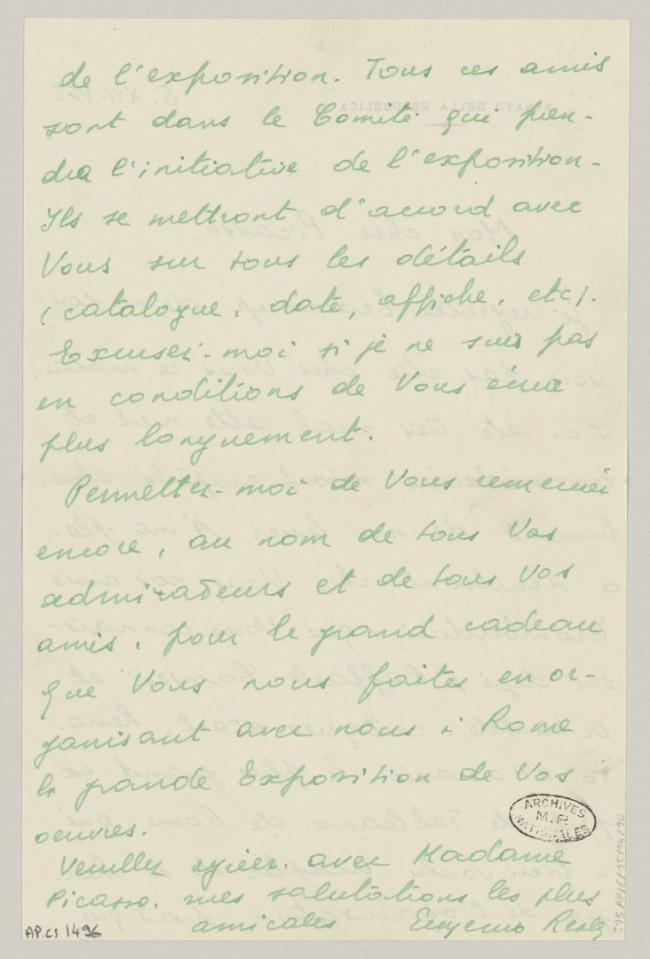 de l'exposition. Tous ces amis
sont dans le Comité qui pren-
dra l'initiative de l'exposition.
Ils se mettront d'accord avec
Vous sur tous les détails
(catalogue, date, affiche, etc).
Excusez-moi si je ne suis pas
en conditions de Vous écrire
plus longuement.
Permettez-moi de Vous remercier
encore, au nom de tous Vos
admirateurs et de tous Vos
amis, pour le grand cadeau
que Vous nous faites en or-
ganisant avec nous à Rome
la grande Exposition de Vos
oeuvres.
Veuillez agréer, avec Madame
Picasso, mes salutations les plus
amicales Eugenio Reale
ARCHIVES
M.P.
NATIONALES
AP.cs 1496
SENATO DELLA REPUBBLICA
Mon cher Picasso,